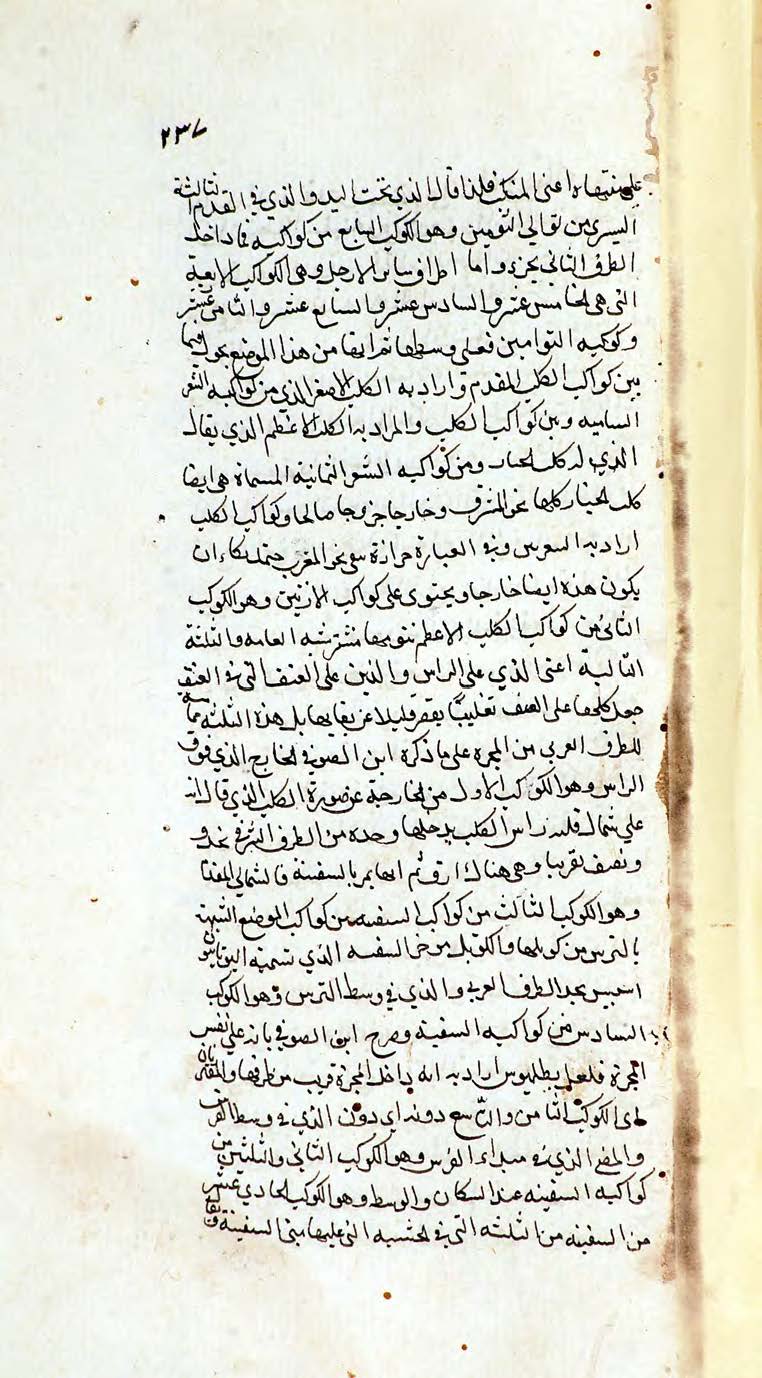 ٢٣٧
على منتهاه اعنى المنكب فلذا قال الذي تحت اليد والذي في القدم الثالثة
اليسرى من توالي التومين وهو الكوكب السابع من كواكبه فاداخل
الطرف الثاني بجزء واما اطراف ساير الارجل وهي الكواكب الاربعة
التي هي الخامس عشر والسادس عشر والسابع عشر والثامن عشر
وكوكبه التوامين فعلى وسطها ثم ايضا من هذا الموضع بحول فيما
بين كواكب الكلب المقدم واراد به الكلب الاصغر الذي من كواكبه الشعر
الساميه وبين كواكب الكلب والمراد به الكلب الاعظم الذي يقال
الذي له كلب الجبار ومن كواكبه الشعر الثمانية المسماة هي ايضا
كلب الجبار كلها نحو المشرق وخارجا جزوجا صالحا وكواكب الكلب
اراد به وفي العبارة حزازة نحو المغرب ان
يكون هذه ايضا خارجا ويحتوى على كواكب الاذنين وهو الكوكب
الثاني من كواكب الكلب الاعظم العامه والثلثة
التالية اعنى الذي على الراس والذين على العنف التي في العنق
جعل كلها على العنف تغليبا بقعر قليلا عن بقايها بل هذه الثلثه مماسه
للطرف الغربي من المجرة على ما ذكره ابن الصوفي الخارج الذي فوق
الراس وهو الكوكب الاول من الخارجة عن صورة الكلب الذي قال انه
على شمال قلنه راس الكلب يدخلها وحده من الطرف الشرقي بجزء
ونصف تقريبا وهي هناك ارق ثم انها يمر بالسفينة فالشمالي المقدم
وهو الكوكب الثالث من كواكب السفينه من كواكب الموضع الشبيه
بالترس من كوثلها والكوثل موخر السفنه الذي تسميته اليونانيون
اسبيس بحد الطرف الغربي والذي في وسط الترس وهو الكوكب
السادس من كواكبه السفينة وصرح ابن الصوفي بانه على نفس
المجرة فلعل بطلميوس اراد به انه داخل المجرة قريب من طرفها والمقتربان
اى الكوكب الثامن والتاسع دونه اي دون الذي في وسط الترس
والمضى الذي في مبداء الترس وهو الكوكب الثاني والثلثين من
كواكبه السفينه عند السكان والوسط وهو الكوكب الحادي عشر
من السفينه من الثلثه التي في الخشبه التي عليها مبنى السفينة